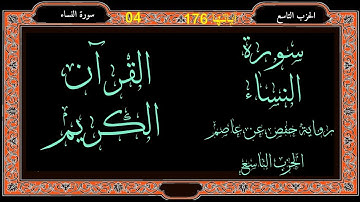 الحزب التاسع
آياتها 176
04
سورة النساء
سورة
النساء
رواية حفص عن عاصم
الحزب التاسع
القرآن
الكريم